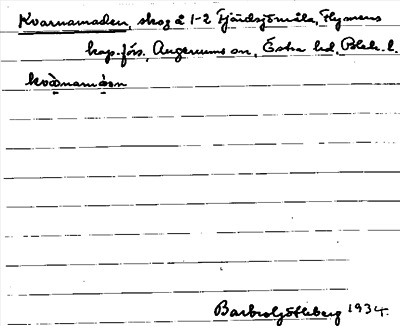 Kvarnamaden, skog å 1-2 Fjärdsjömåla, Flymens
kap. förs. Augerums sn, Östra hd. Blek. l.
kvànamáen
Barbro Götleborg 1934.